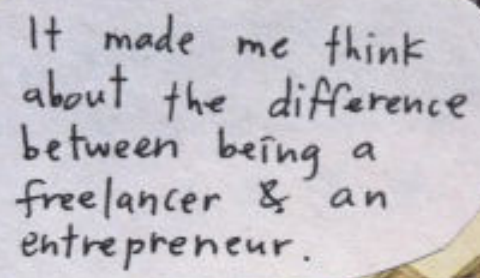 It made me think
about the difference
between being a
freelancer & an
entrepreneur.